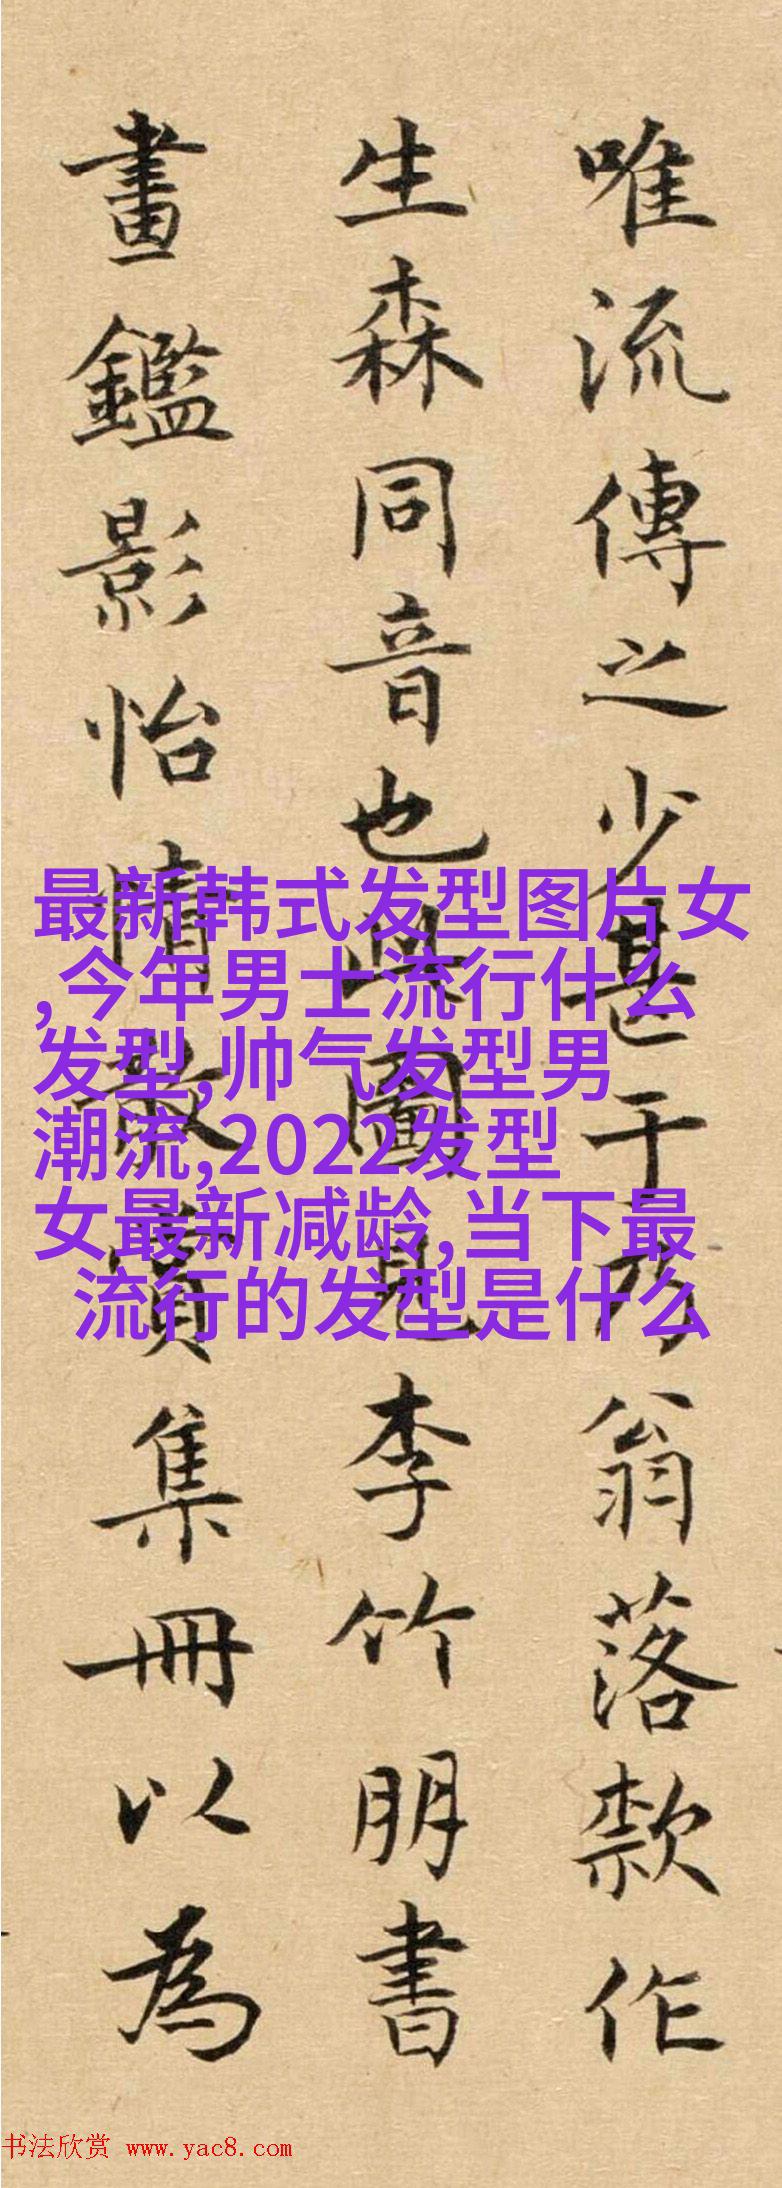 唯流傳之少甚于乃翁落款作
生森同音也圖見李竹朋書
畫鑑影怡情集冊以為
最新韩式发型图片女
,今年男士流行什么
发型,帅气发型男
潮流,2022发型
女最新减龄,当下最
流行的发型是什么
书法欣赏 www.yac8.com